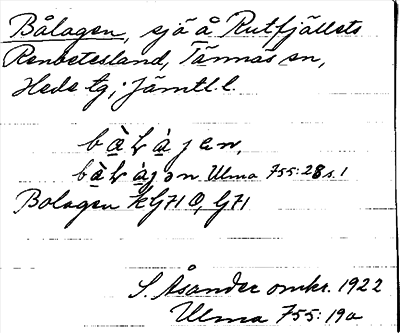 Bålagen, sjö å Rutfjällets
Renbetesland, Tännäs sn,
Hede tg; Jämtl. l.
bàlàjen,
bàlàjon Ulma 755:28 s. 1
Bolagen HG71Ö, G71
S. Åsander omkr. 1922
Ulma 755:19a